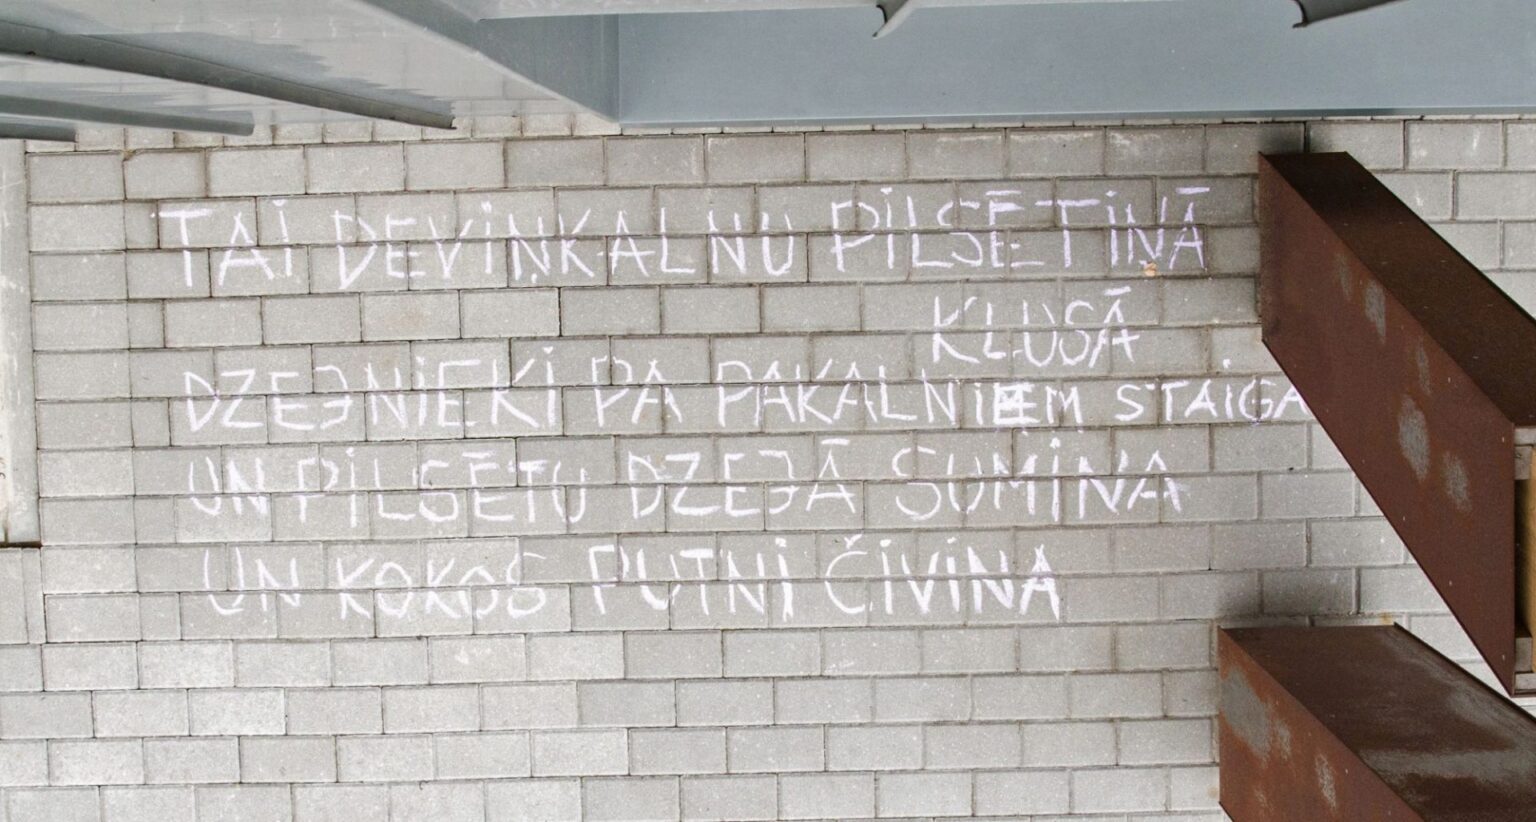 TAI DEVIŅKALNU PILSĒTIŅĀ
KLUSĀ
DZEJNIEKI PA PAKALNIEM STAIGA
UN PILSĒTU DZEJĀ SUMINA
UN KOKOS PUTNI ČIVINA